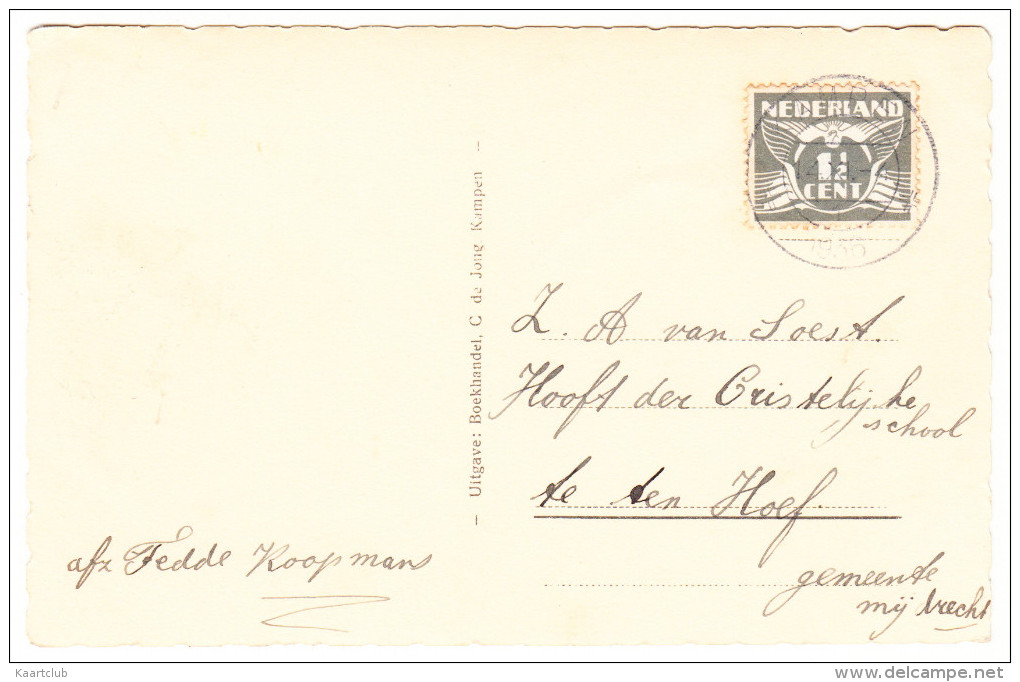 NEDERLAND
1½
CENT
1936
Uitgave: Boekhandel, C de Jong Kampen
Z. A van Soest.
Hooft der Cristelijke
school
te ten Hoef.
gemeente
mijdrecht
afz Fedde Koopmans
Kaartclub
www.delcampe.net